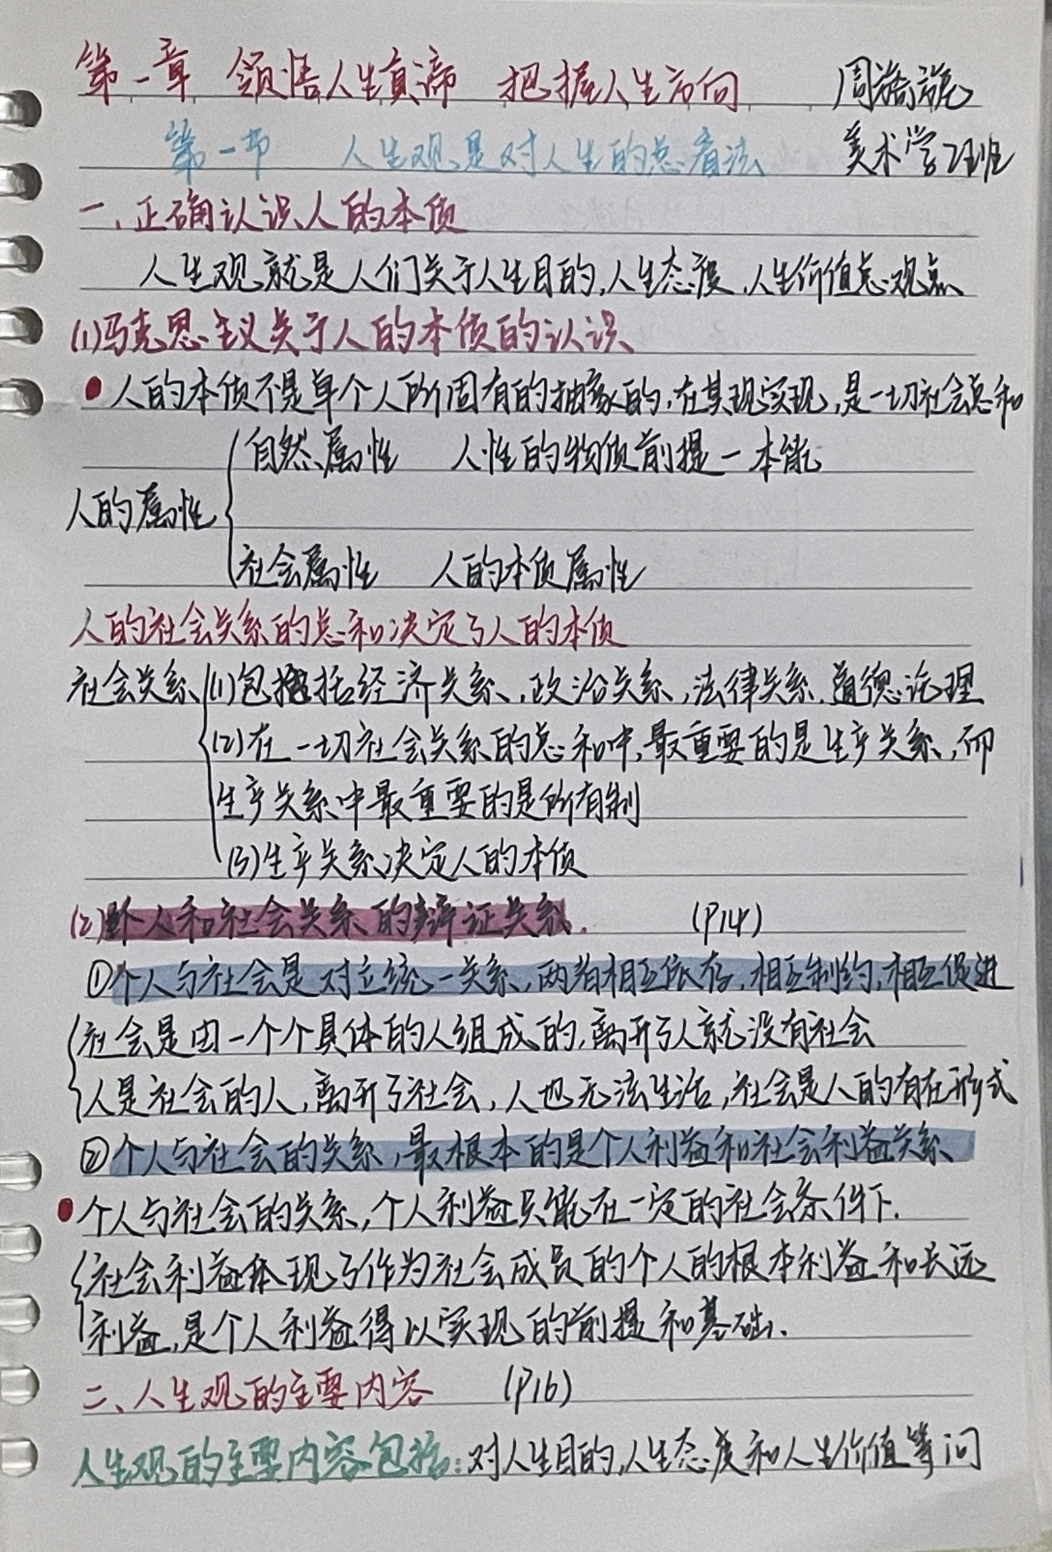 第一章 领悟人生真谛 把握人生方向 周
第一节 人生观是对人生的总看法 美术学2班
一、正确认识人的本质
人生观就是人们关于人生目的,人生态度,人生价值总观点
(1)马克思主义关于人的本质的认识
人的本质不是单个人所固有的抽象的,在其现实现,是一切社会总和
自然属性 人性的物质前提一本能
人的属性
社会属性 人的本质属性
人的社会关系的总和决定了人的本质
社会关系 (1)包括经济关系,政治关系,法律关系,道德论理
(2)在一切社会关系的总和中,最重要的是生产关系,而
生产关系中最重要的是所有制
(3)生产关系决定人的本质
(2)个人和社会关系的辩证关系. (P14)
①个人与社会是对立统一关系,两者相互依存,相互制约,相互促进
社会是由一个个具体的人组成的,离开了人就没有社会
人是社会的人,离开了社会,人也无法生活,社会是人的存在形式
②个人与社会的关系,最根本的是个人利益和社会利益关系
个人与社会的关系,个人利益只能在一定的社会条件下.
社会利益体现了作为社会成员的个人的根本利益和长远
利益,是个人利益得以实现的前提和基础.
二、人生观的主要内容 (P16)
人生观的主要内容包括:对人生目的,人生态度和人生价值等问